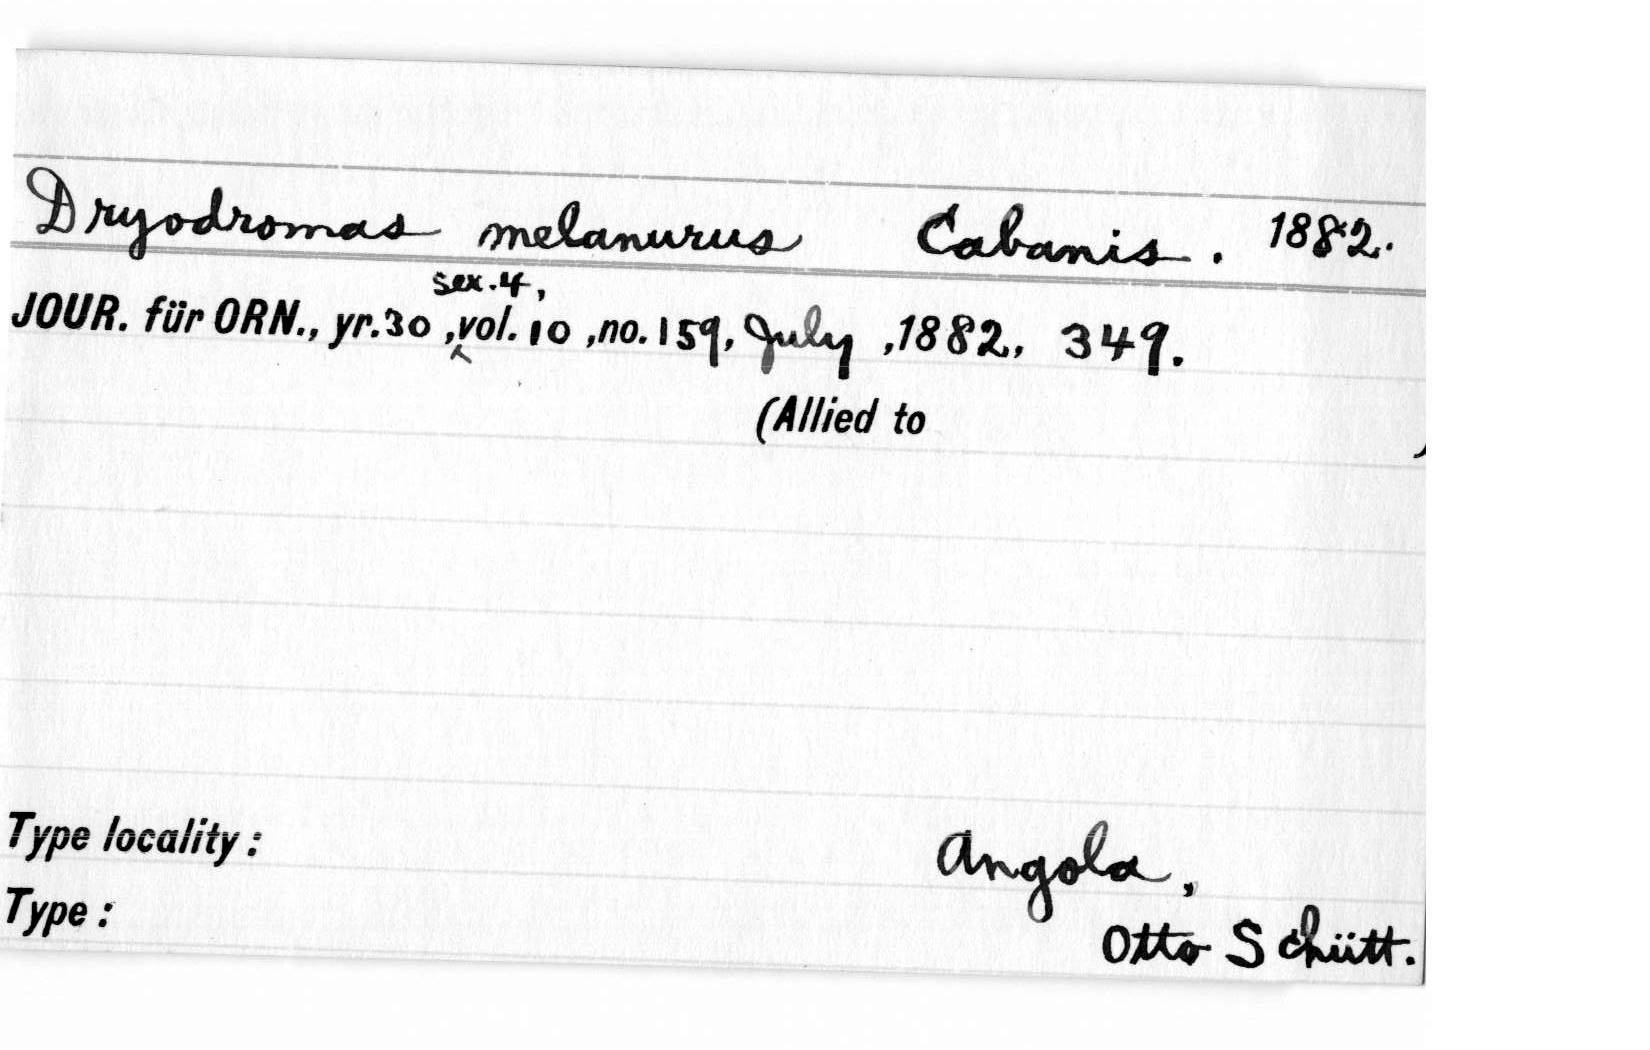 Dryodromas melanurus Cabanis. 1882.
sex.4,
JOUR. für ORN., yr.30 ,vol. 10 ,no. 159, July ,1882, 349.
(Allied to )
Type locality: Angola,
Type: Otto Schütt.